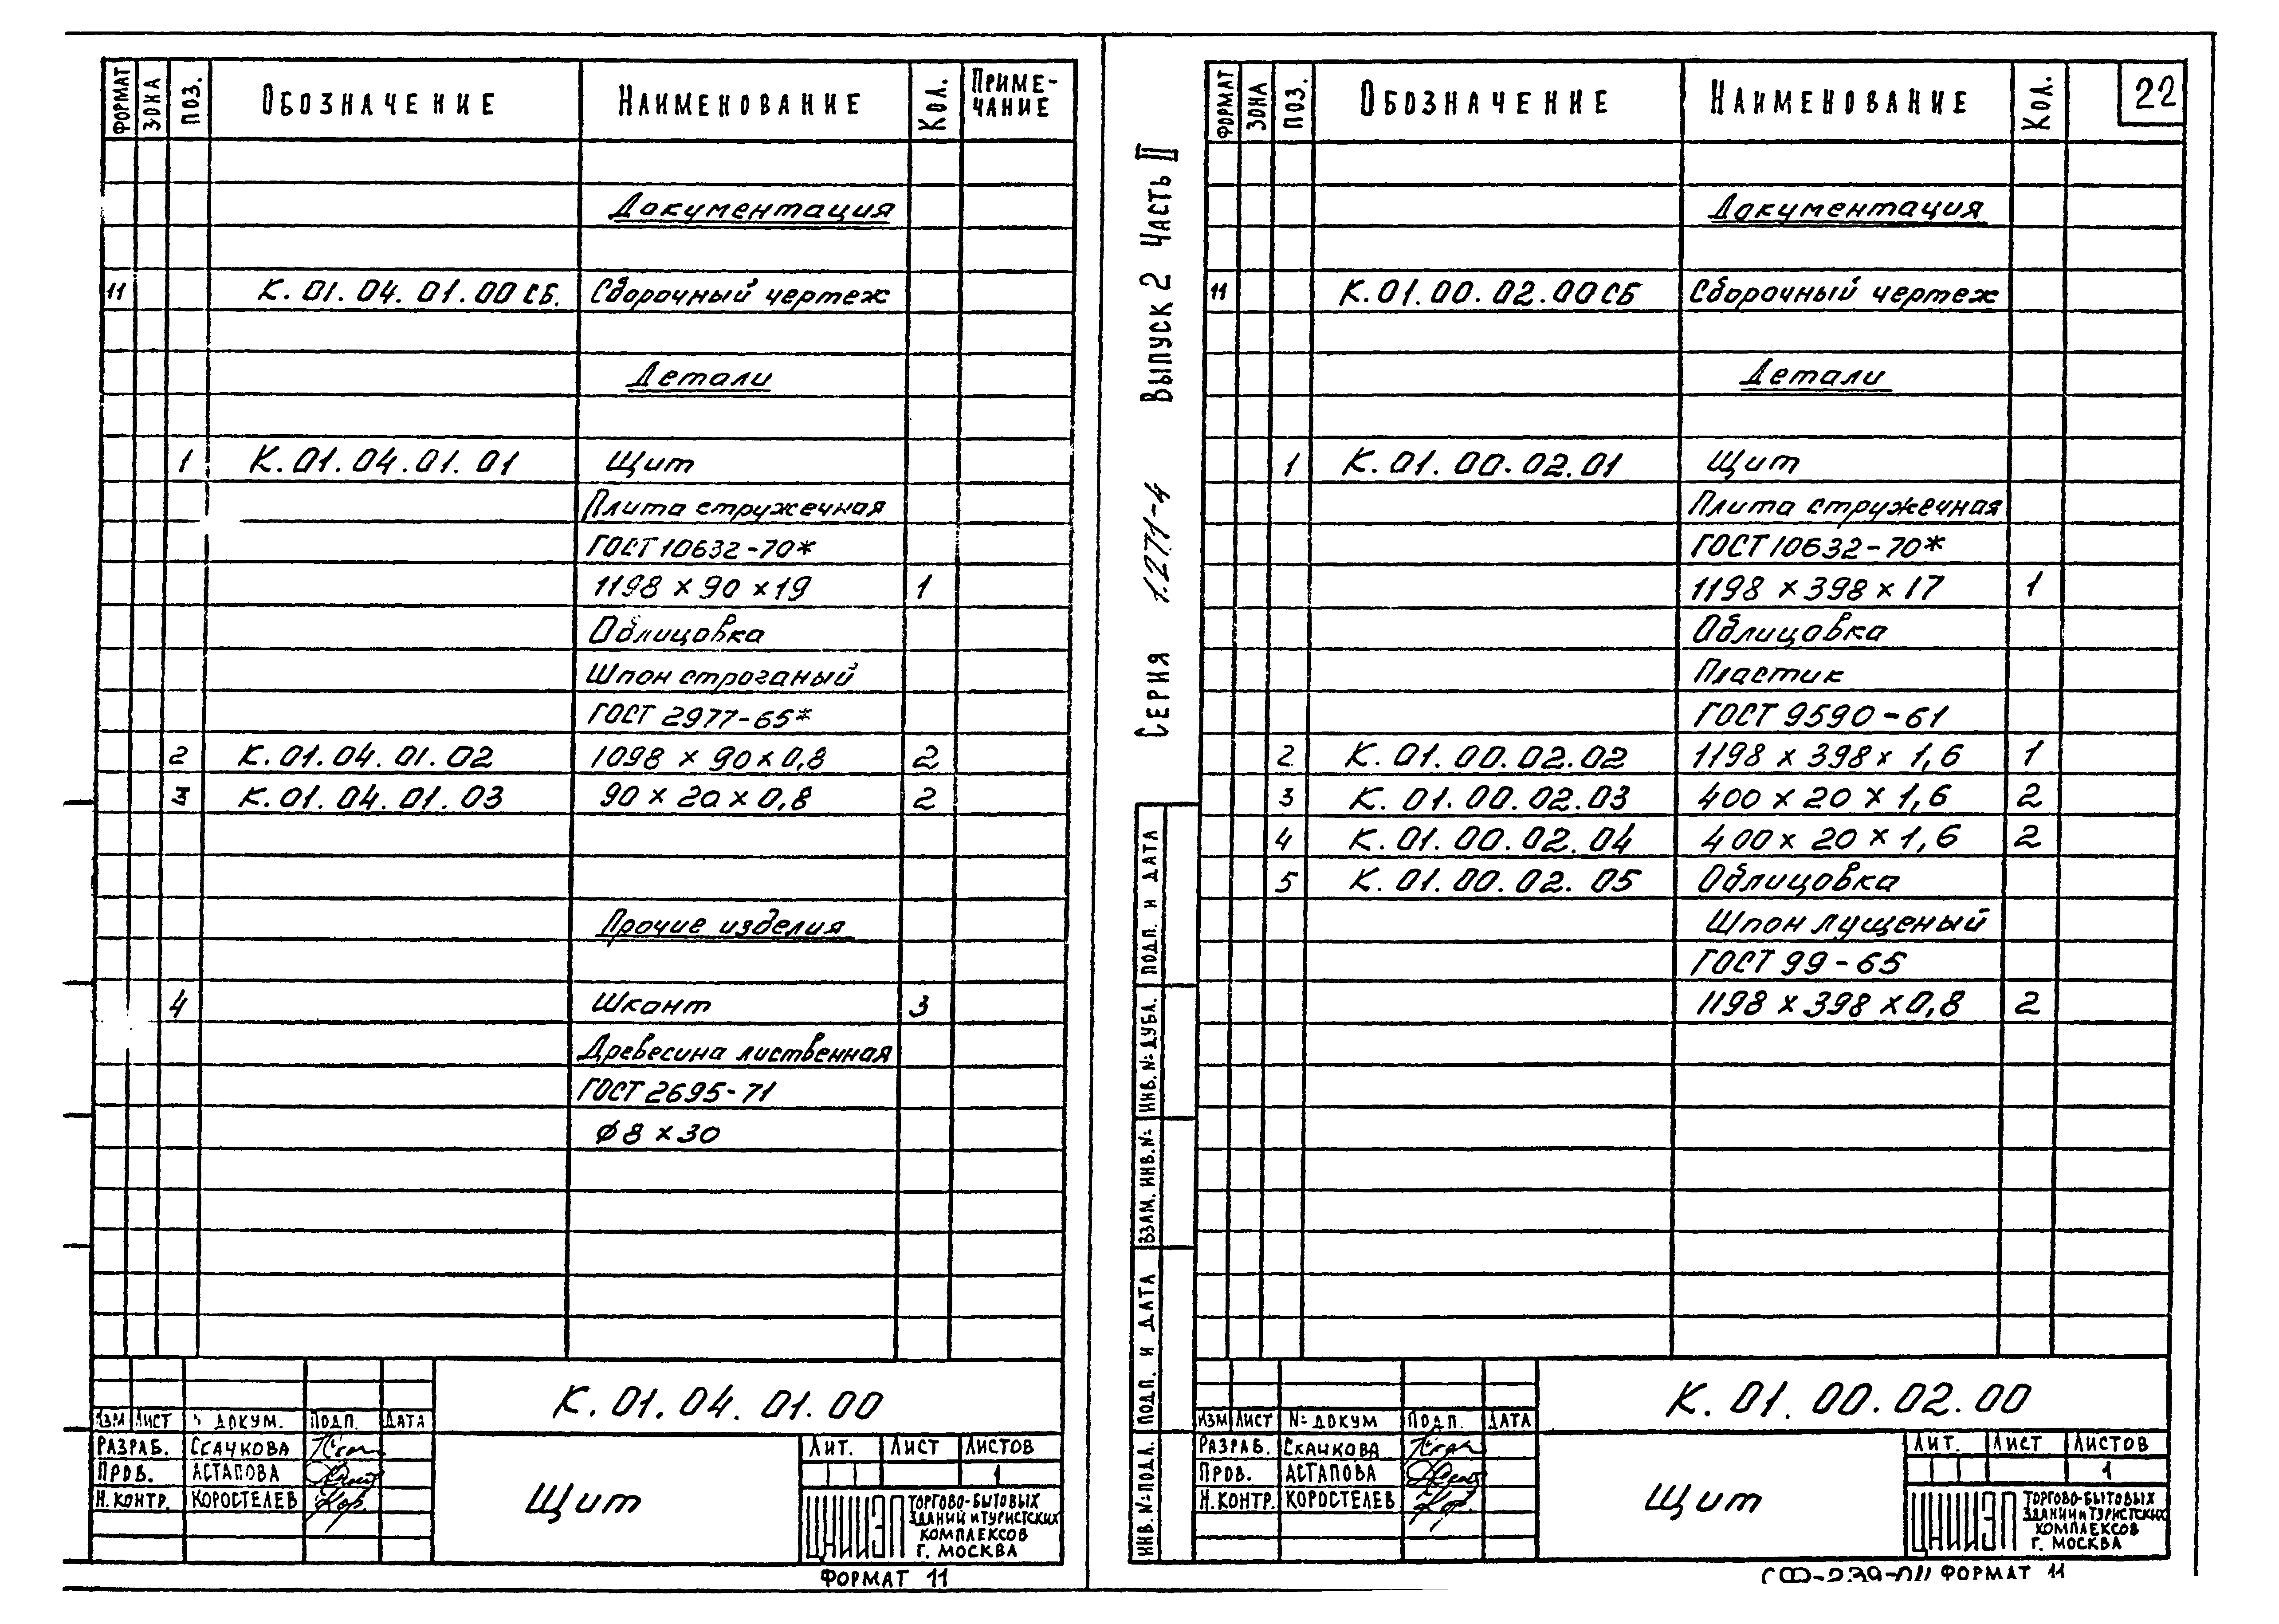 ФОРМАТ ЗОНА ПОЗ. ОБОЗНАЧЕНИЕ НАИМЕНОВАНИЕ КОЛ. ПРИМЕ-
ЧАНИЕ
Документация
11 К.01.04.01.00 СБ. Сборочный чертеж
Детали
1 К.01.04.01.01 Щит
Плита стружечная
ГОСТ 10632-70*
1198 x 90 x 19 1
Облицовка
Шпон строганый
ГОСТ 2977-65*
2 К.01.04.01.02 1098 x 90 x 0,8 2
3 К.01.04.01.03 90 x 20 x 0,8 2
Прочие изделия
4 Шкант 3
Древесина лиственная
ГОСТ 2695-71
ϕ 8 x 30
К.01.04.01.00
ИЗМ ЛИСТ ДОКУМ. ПОДП. ДАТА
РАЗРАБ. СКАЧКОВА
ПРОВ. АСТАПОВА
Н.КОНТР. КОРОСТЕЛЕВ
Щит
ЛИТ. ЛИСТ ЛИСТОВ
1
ЦНИИЭП ТОРГОВО-БЫТОВЫХ
ЗДАНИЙ И ТУРИСТСКИХ
КОМПЛЕКСОВ
Г. МОСКВА
ФОРМАТ 11
СЕРИЯ 1.271-4 ВЫПУСК 2 ЧАСТЬ II
22
ФОРМАТ ЗОНА ПОЗ. ОБОЗНАЧЕНИЕ НАИМЕНОВАНИЕ КОЛ.
Документация
11 К.01.00.02.00СБ Сборочный чертеж
Детали
1 К.01.00.02.01 Щит
Плита стружечная
ГОСТ 10632-70*
1198 x 398 x 17 1
Облицовка
Пластик
ГОСТ 9590-61
2 К.01.00.02.02 1198 x 398 x 1,6 1
3 К.01.00.02.03 400 x 20 x 1,6 2
4 К.01.00.02.04 400 x 20 x 1,6 2
5 К.01.00.02.05 Облицовка
Шпон лущеный
ГОСТ 99-65
1198 x 398 x 0,8 2
ПОДП. И ДАТА
ИНВ. № ДУБЛ.
ВЗАМ. ИНВ. №
ПОДП. И ДАТА
ИНВ. № ПОДЛ.
К.01.00.02.00
ИЗМ ЛИСТ № ДОКУМ ПОДП. ДАТА
РАЗРАБ. СКАЧКОВА
ПРОВ. АСТАПОВА
Н.КОНТР. КОРОСТЕЛЕВ
Щит
ЛИТ. ЛИСТ ЛИСТОВ
1
ЦНИИЭП ТОРГОВО-БЫТОВЫХ
ЗДАНИЙ И ТУРИСТСКИХ
КОМПЛЕКСОВ
Г. МОСКВА
ФОРМАТ 11